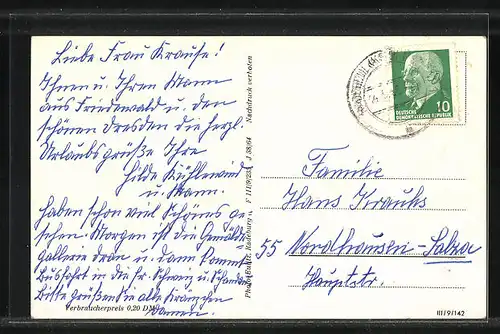 Liebe Frau Krause!
Ihnen u. Ihrem Mann
aus Friedewald u. dem
schönen Dresden die herzl.
Urlaubsgrüße Ihre
Hilde Kühlewind
u. Mann.
Haben schon viel Schönes ge
sehen. Morgen ist die Gemälde
gallerie dran u. dann kommt
Busfahrt in die Sä. Schweiz u.
Bitte grüßen Sie alle
Verbraucherpreis 0,20 DM
Nachdruck verboten
F III/9/233 J 58/64
10
DEUTSCHE
DEMOKRATISCHE REPUBLIK
Familie
Hans Krauhs
55 Nordhausen-Salza
Hauptstr.
III/9/142